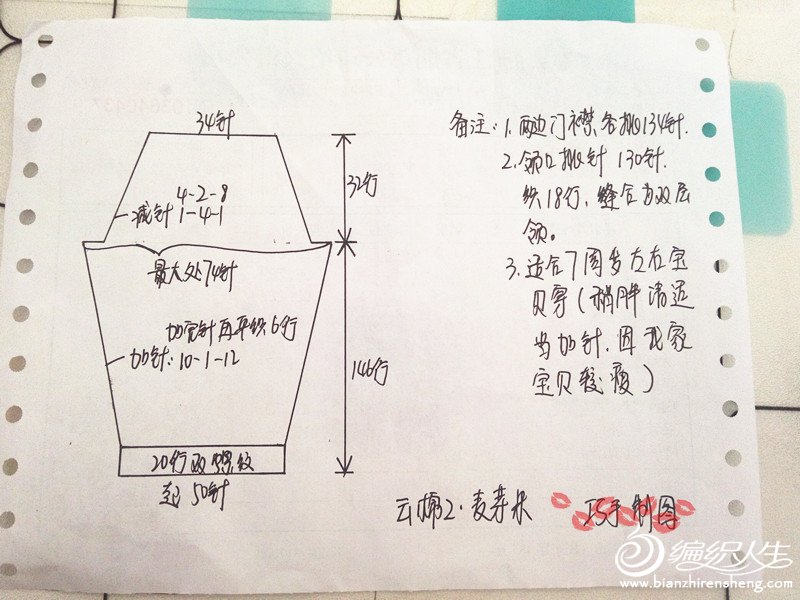 34针
备注:1.两边门襟各挑134针.
2.领口挑针130针.
织18行,缝合为双层
领。
3.适合7周岁左右宝
贝穿(稍胖请适
当加针,因我家
宝贝较瘦)
4-2-8
减针 1-4-1
32行
最大处74针
加完针再平织6行
加针:10-1-12
146行
20行双螺纹
起50针
云棉2·麦芽米
巧手制图
编织人生
www.bianzhirensheng.com